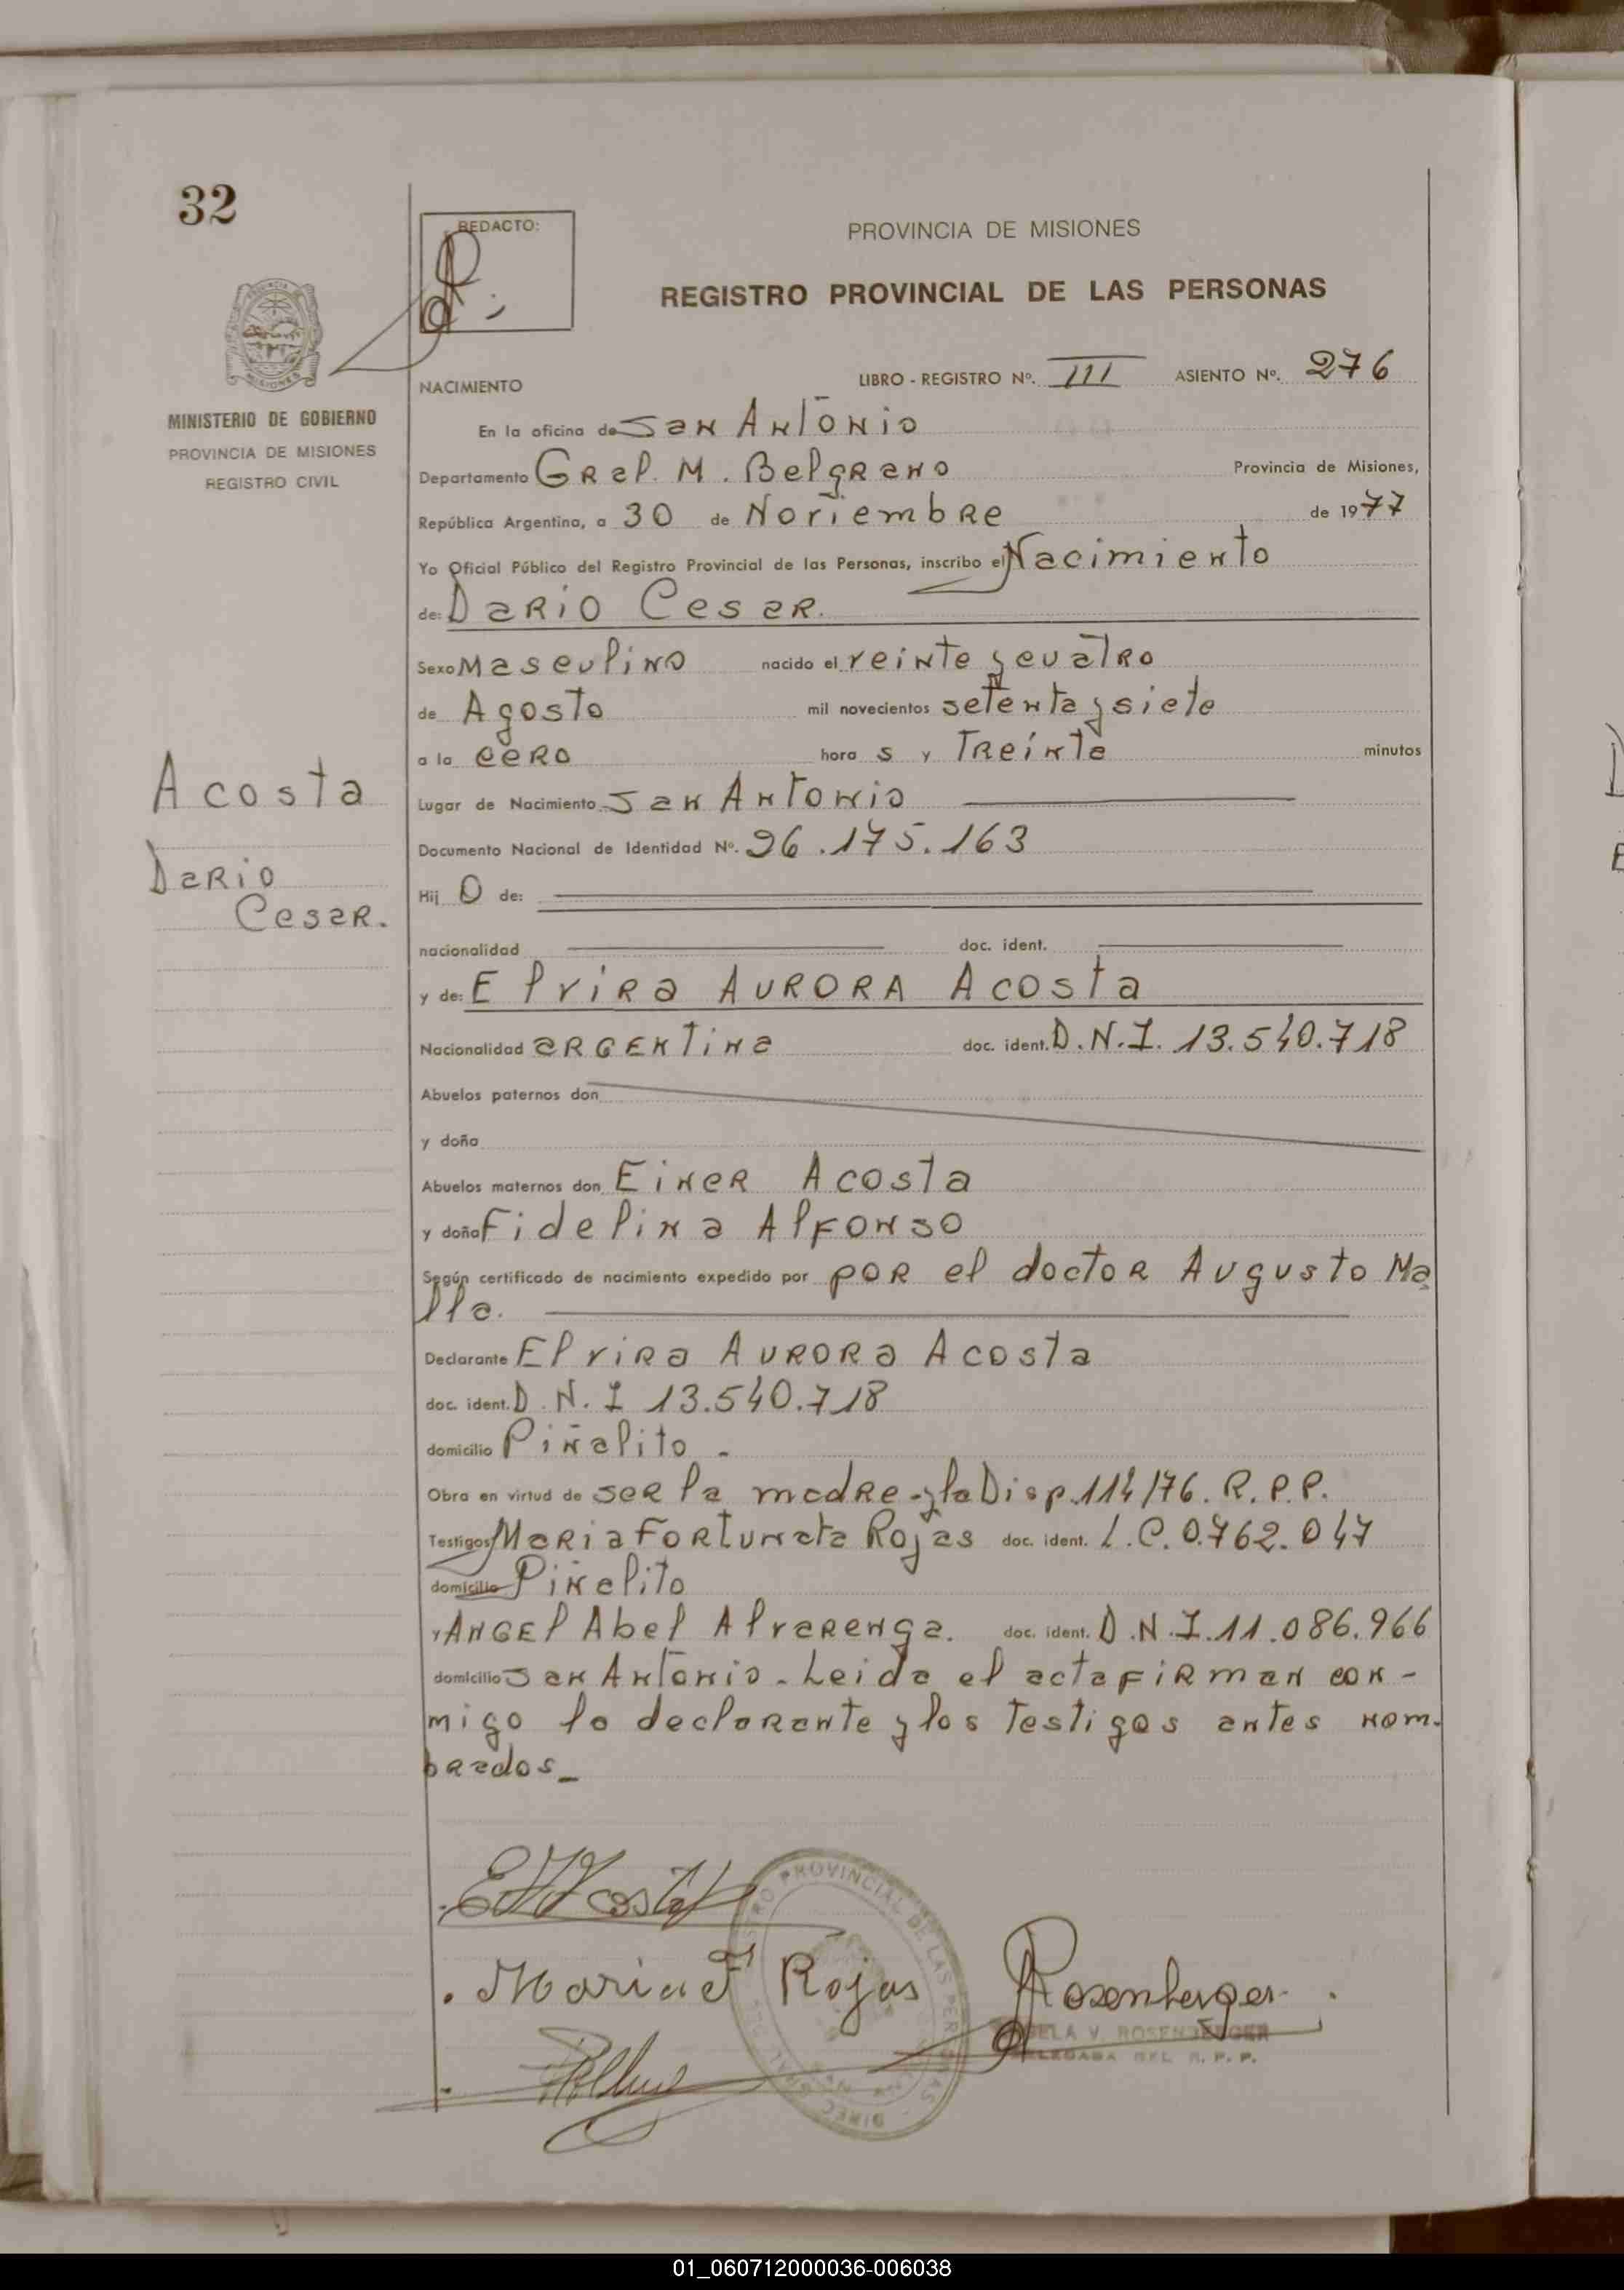 32
REDACTO:
PROVINCIA DE MISIONES
REGISTRO PROVINCIAL DE LAS PERSONAS
MINISTERIO DE GOBIERNO
PROVINCIA DE MISIONES
REGISTRO CIVIL
NACIMIENTO LIBRO - REGISTRO Nº. III ASIENTO Nº. 276
En la oficina de San Antonio
Departamento Gral. M. Belgrano Provincia de Misiones,
República Argentina, a 30 de Noviembre de 1977
Yo Oficial Público del Registro Provincial de las Personas, inscribo el Nacimiento
de: Dario Cesar.
Sexo Masculino nacido el veinte y cuatro
de Agosto mil novecientos setenta y siete
a la cero hora s y Treinta minutos
Acosta
Dario
Cesar.
Lugar de Nacimiento San Antonio
Documento Nacional de Identidad Nº. 26.175.163
Hij O de:
nacionalidad doc. ident.
y de: Elvira Aurora Acosta
Nacionalidad argentina doc. ident. D.N.I. 13.540.718
Abuelos paternos don
y doña
Abuelos maternos don Einer Acosta
y doña Fidelina Alfonso
Según certificado de nacimiento expedido por por el doctor Augusto Ma
lla.
Declarante Elvira Aurora Acosta
doc. ident. D.N.I 13.540.718
domicilio Piñalito.
Obra en virtud de ser la madre-y la Disp. 114/76. R.P.P.
Testigos Maria Fortunata Rojas doc. ident. L.C. 0.762.047
domicilio Piñalito
y Angel Abel Alvarenga. doc. ident. D.N.I. 11.086.966
domicilio San Antonio. Leida el acta firman con-
migo la declarante y los testigos antes nom.
brados_
E A Acosta
Maria F Rojas
Rosenberger
V. ROSENBERGER
DELEGADA DEL R. P. P.
PROVINCIAL DE LAS PERSONAS
01_060712000036-006038